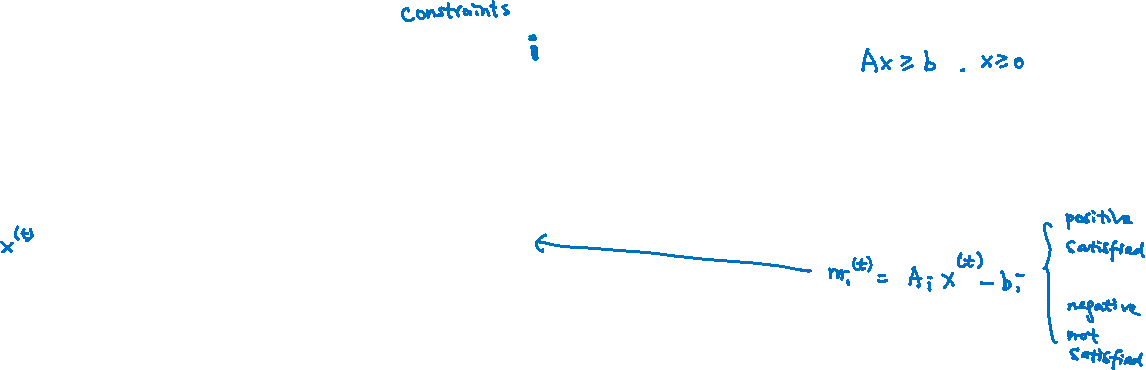 Constraints
i
Ax ≥ b . x ≥ 0
x^(t)
m_i^(t) = A_i x^(t) - b_i
positive
satisfied
negative
not
satisfied